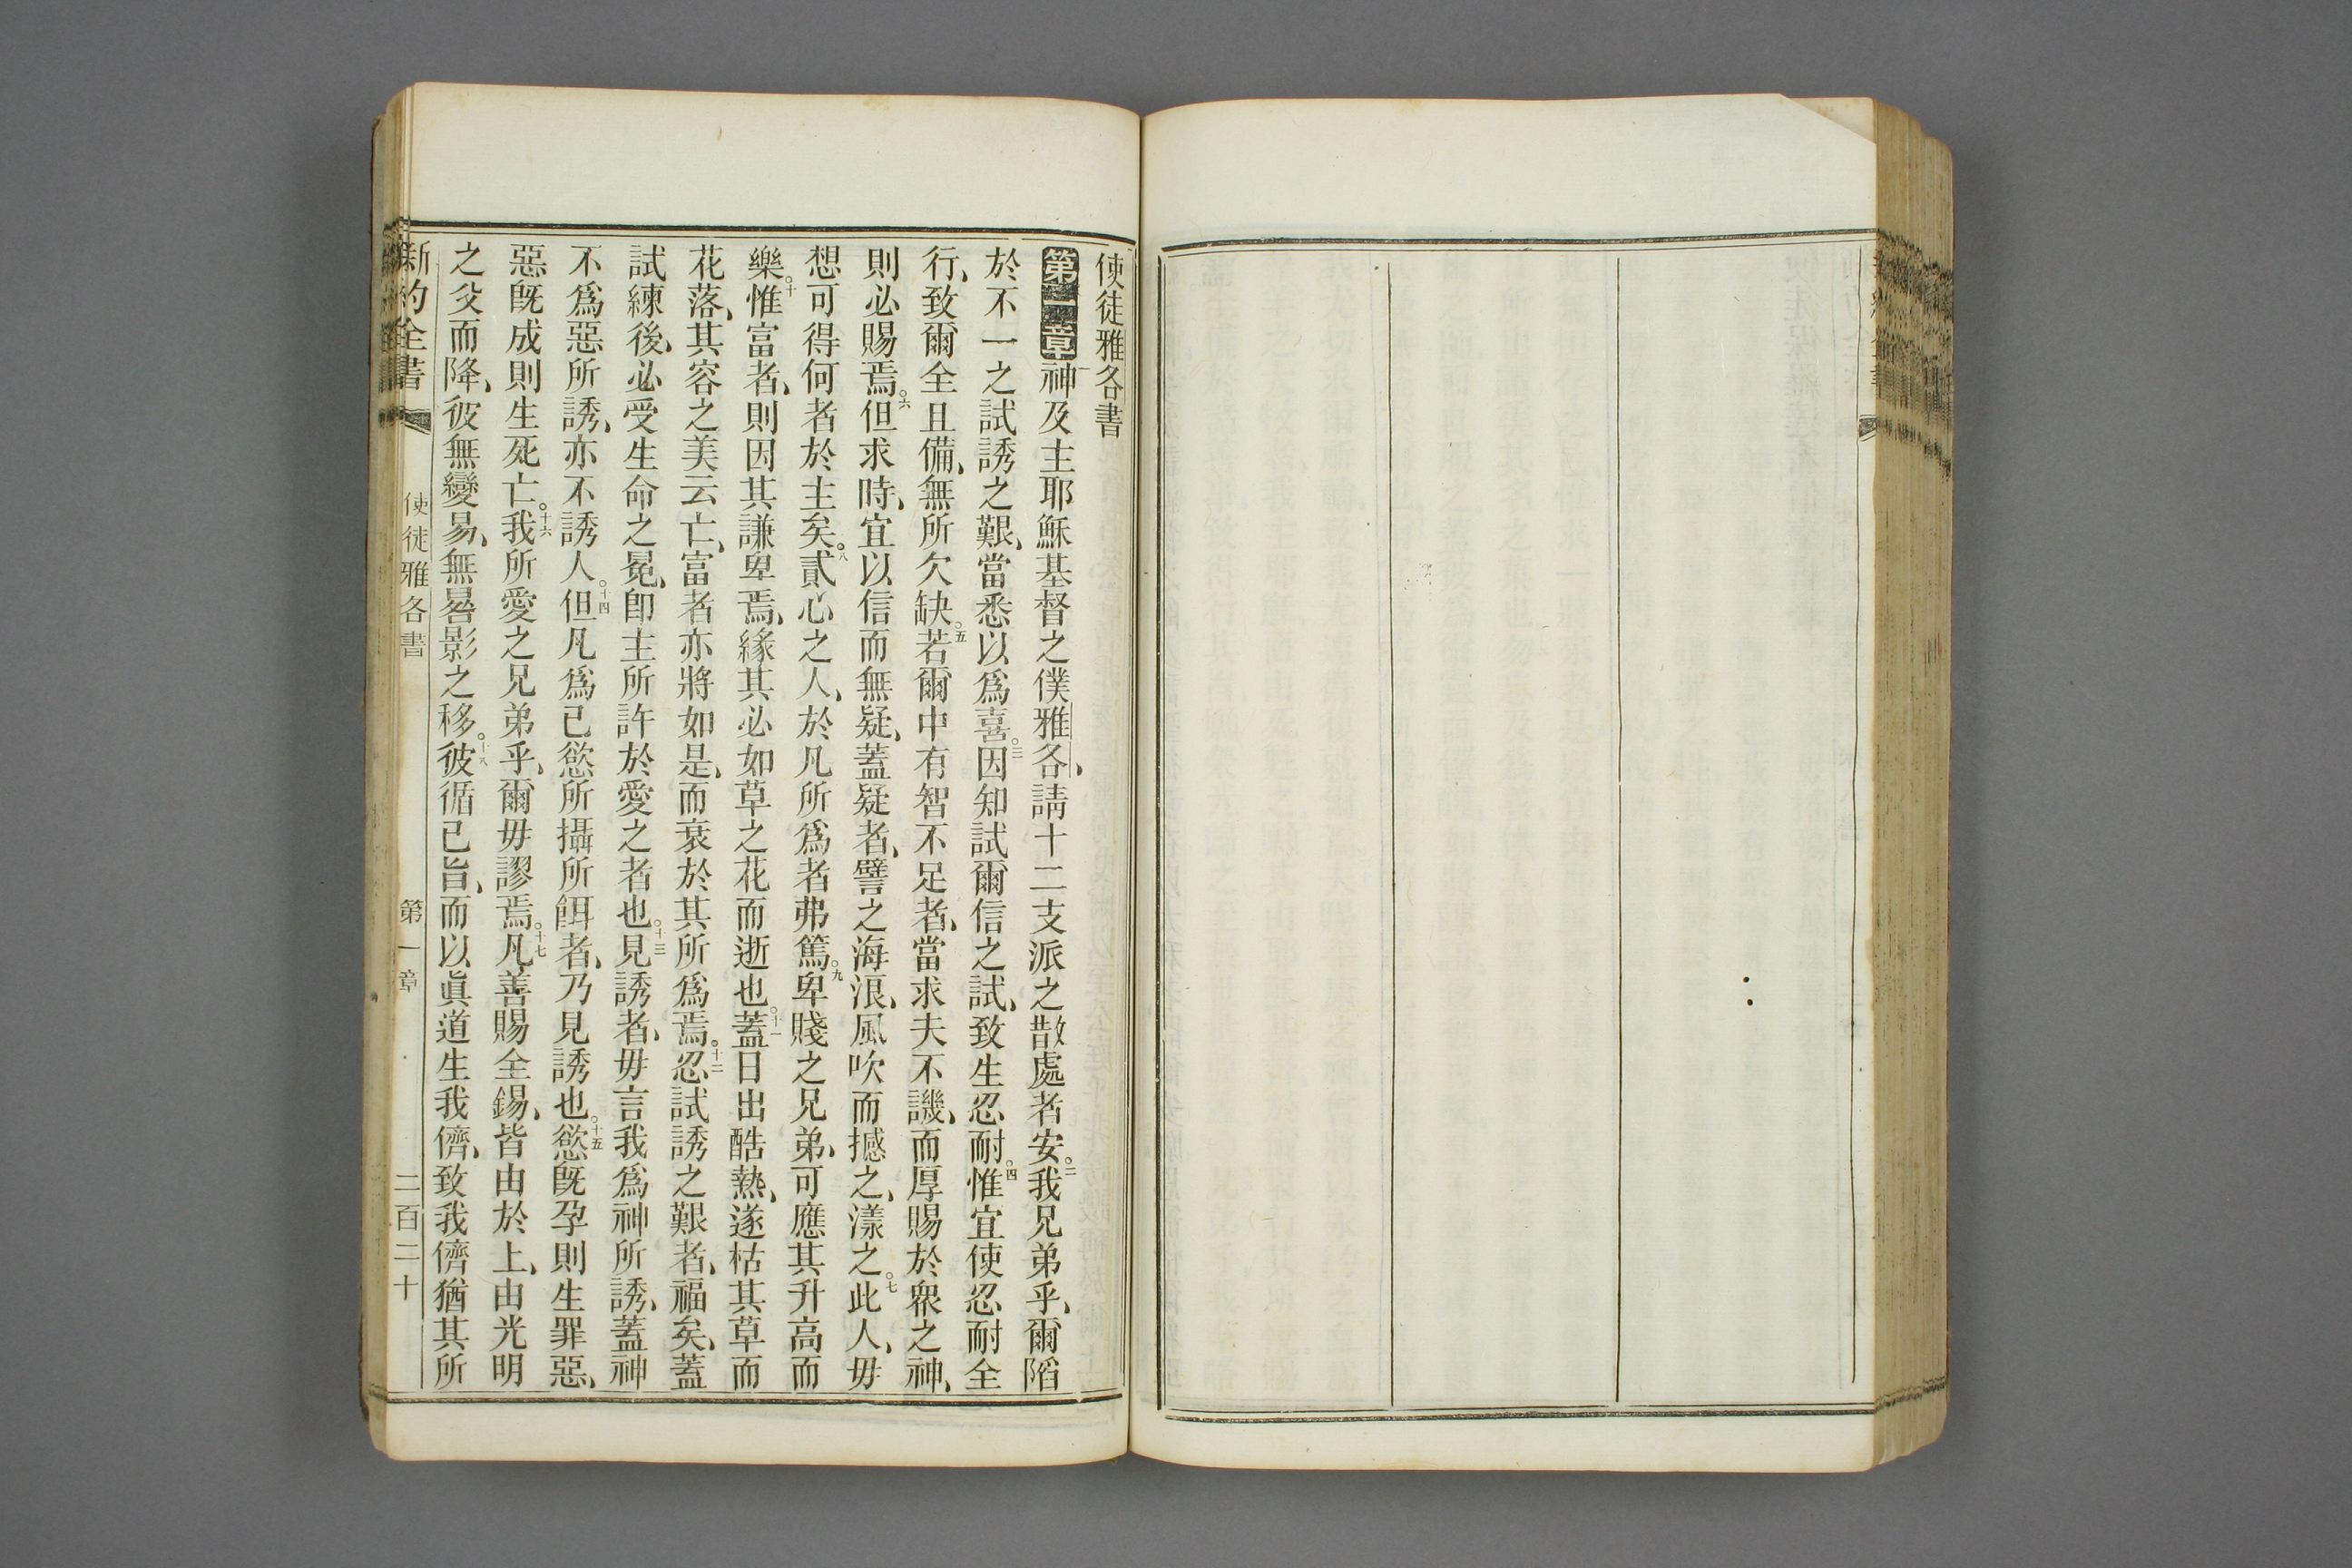 使徒雅各書
第一章一神及主耶穌基督之僕雅各、請十二支派之散處者安。二我兄弟乎、爾陷
於不一之試誘之艱、當悉以爲喜。三因知試爾信之試、致生忍耐。四惟宜使忍耐全
行、致爾全且備、無所欠缺。五若爾中有智不足者、當求夫不譏、而厚賜於衆之神、
則必賜焉。六但求時、宜以信而無疑、蓋疑者、譬之海浪、風吹而撼之、漾之。七此人、毋
想可得何者於主矣。八貳心之人、於凡所爲者弗篤。九卑賤之兄弟、可應其升高而
樂。十惟富者、則因其謙卑焉、緣其必如草之花而逝也。十一蓋日出酷熱、遂枯其草而
花落、其容之美云亡、富者亦將如是、而衰於其所爲焉。十二忍試誘之艱者、福矣、蓋
試練後、必受生命之冕、卽主所許於愛之者也。十三見誘者、毋言我爲神所誘、蓋神
不爲惡所誘、亦不誘人。十四但凡爲己慾所攝所餌者、乃見誘也。十五慾旣孕則生罪惡、
惡旣成則生死亡。十六我所愛之兄弟乎、爾毋謬焉。十七凡善賜全錫、皆由於上、由光明
之父而降、彼無變易、無晷影之移。十八彼循己旨、而以眞道生我儕、致我儕猶其所
新約全書 使徒雅各書 第一章 二百二十